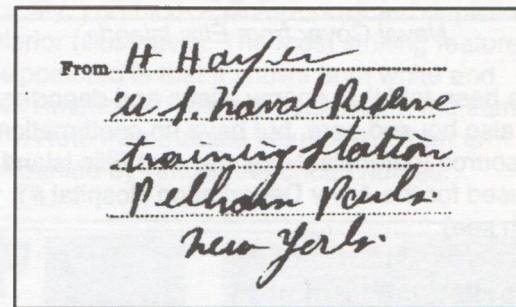 From H Hayes
U.S. Naval Reserve
training station
Pelham Park
New York.